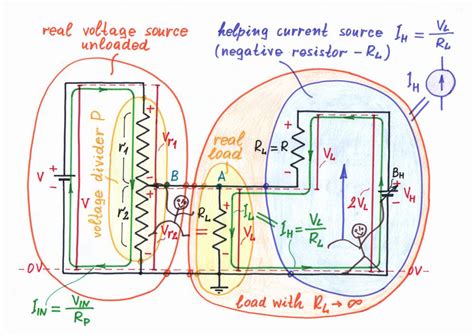 real voltage source
unloaded
helping current source
(negative resistor - RL)
IH = VL/RL
IH
voltage divider P
r1
r2
Vr1
Vr2
V
V
B
A
real
load
RL
RL = R
VL
IL
VL
IH = VL/RL
VL
2VL
BH
VH
0V
0V
IIN = VIN/RP
load with RL → ∞